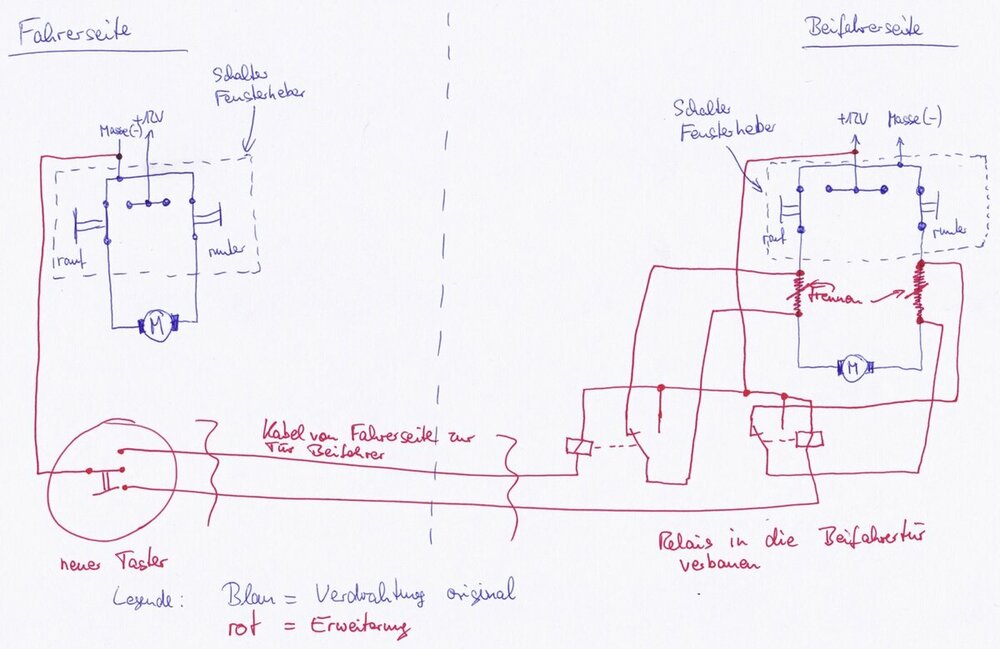 Fahrerseite
Beifahrerseite
Schalter
Fensterheber
Masse(-)
+12V
rauf
runter
M
Schalter
Fensterheber
+12V
Masse(-)
rauf
runter
Trennen
M
Kabel von Fahrerseite zur
Tür Beifahrer
neuer Taster
Relais in die Beifahrertür
verbauen
Legende: Blau = Verdrahtung original
rot = Erweiterung